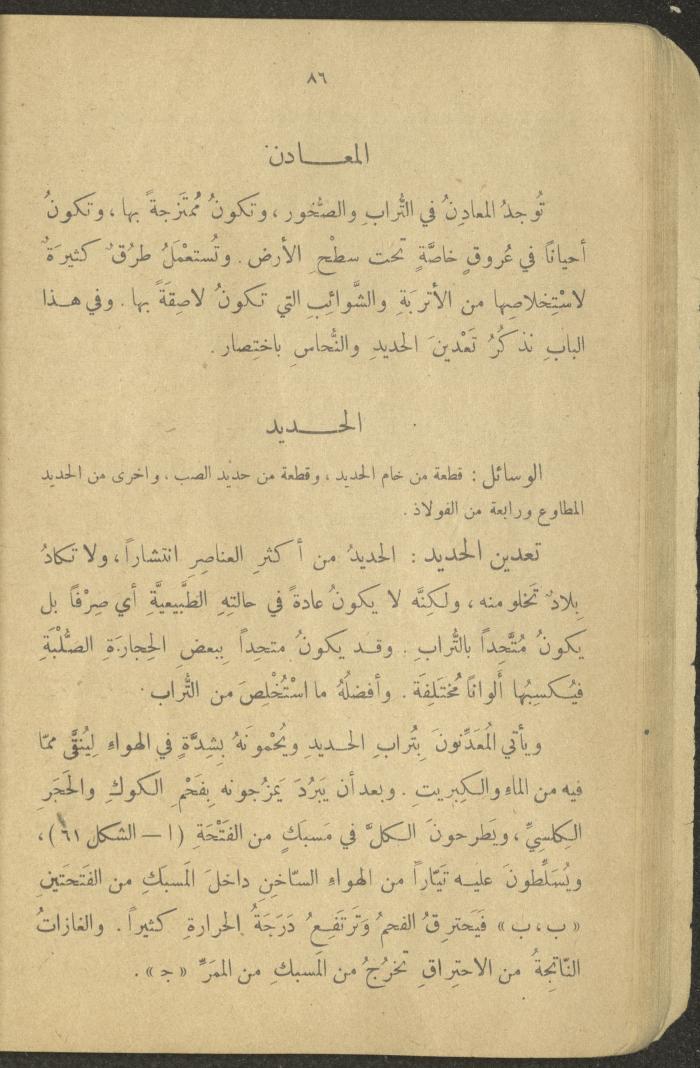 ٨٦
المعـــادن
تُوجدُ المعادِنُ في التُّرابِ والصُّخور ، وتكونُ مُمتَزجةً بها ، وتكونُ
أحياناً في عُروقٍ خاصَّةٍ تحت سطْحِ الأرض . وتُستعْمَلُ طرُقٌ كثيرَةٌ
لاسْتِخلاصِها من الأتربَةِ والشَّوائِبِ التي تكونُ لاصِقَةً بها . وفي هـذا
البابِ نذكُرُ تَعْدينَ الحديدِ والنُّحاسِ باختِصار .
الحـــديد
الوسائل : قطعة من خام الحديد ، وقطعة من حديد الصب ، واخرى من الحديد
المطاوع ورابعة من الفولاذ .
تعدين الحديد : الحديدُ من أكثرِ العناصِرِ انتشاراً ، ولا تكادُ
بِلادٌ تَخلو منه ، ولكِنَّه لا يكونُ عادةً في حالتِهِ الطَّبيعيَّةِ أي صِرْفاً بل
يكونُ مُتَّحِداً بالتُّرابِ . وقـد يكونُ متحِداً بِبعضِ الحِجارَةِ الصُّلْبَةِ
فيُكسِبُها أَلواناً مُختَلِفَة . وأفضلُهُ ما اسْتُخْلِصَ من التُّراب .
ويأتي المُعَدِّنونَ بِتُرابِ الحـديدِ ويُحْمونَهُ بِشِدَّةٍ في الهواءِ لِيُنقَّى ممّا
فيه من الماءِ والكِبريتِ . وبعد أن يَبْرُدَ يَمزُجونه بِفَحْمِ الكوكِ والحَجَرِ
الكِلسيِّ ، ويَطرحونَ الكلَّ في مَسبَكٍ من الفَتْحَةِ ( ا – الشكل ٦١ ) ،
ويُسَلِّطونَ عليـه تَيّاراً من الهواءِ السّاخنِ داخلَ المَسبَكِ من الفَتَحتَينِ
« ب ، ب » فَيَحترِقُ الفحمُ وَتَرتَفِعُ دَرَجَةُ الحرارةِ كثيراً . والغازاتُ
النّاتِجةُ من الاحتِراقِ تخرُجُ من المَسبكِ من الممَرِّ « جـ » .